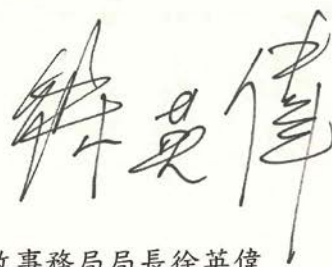 徐英偉
政事務局局長徐英偉